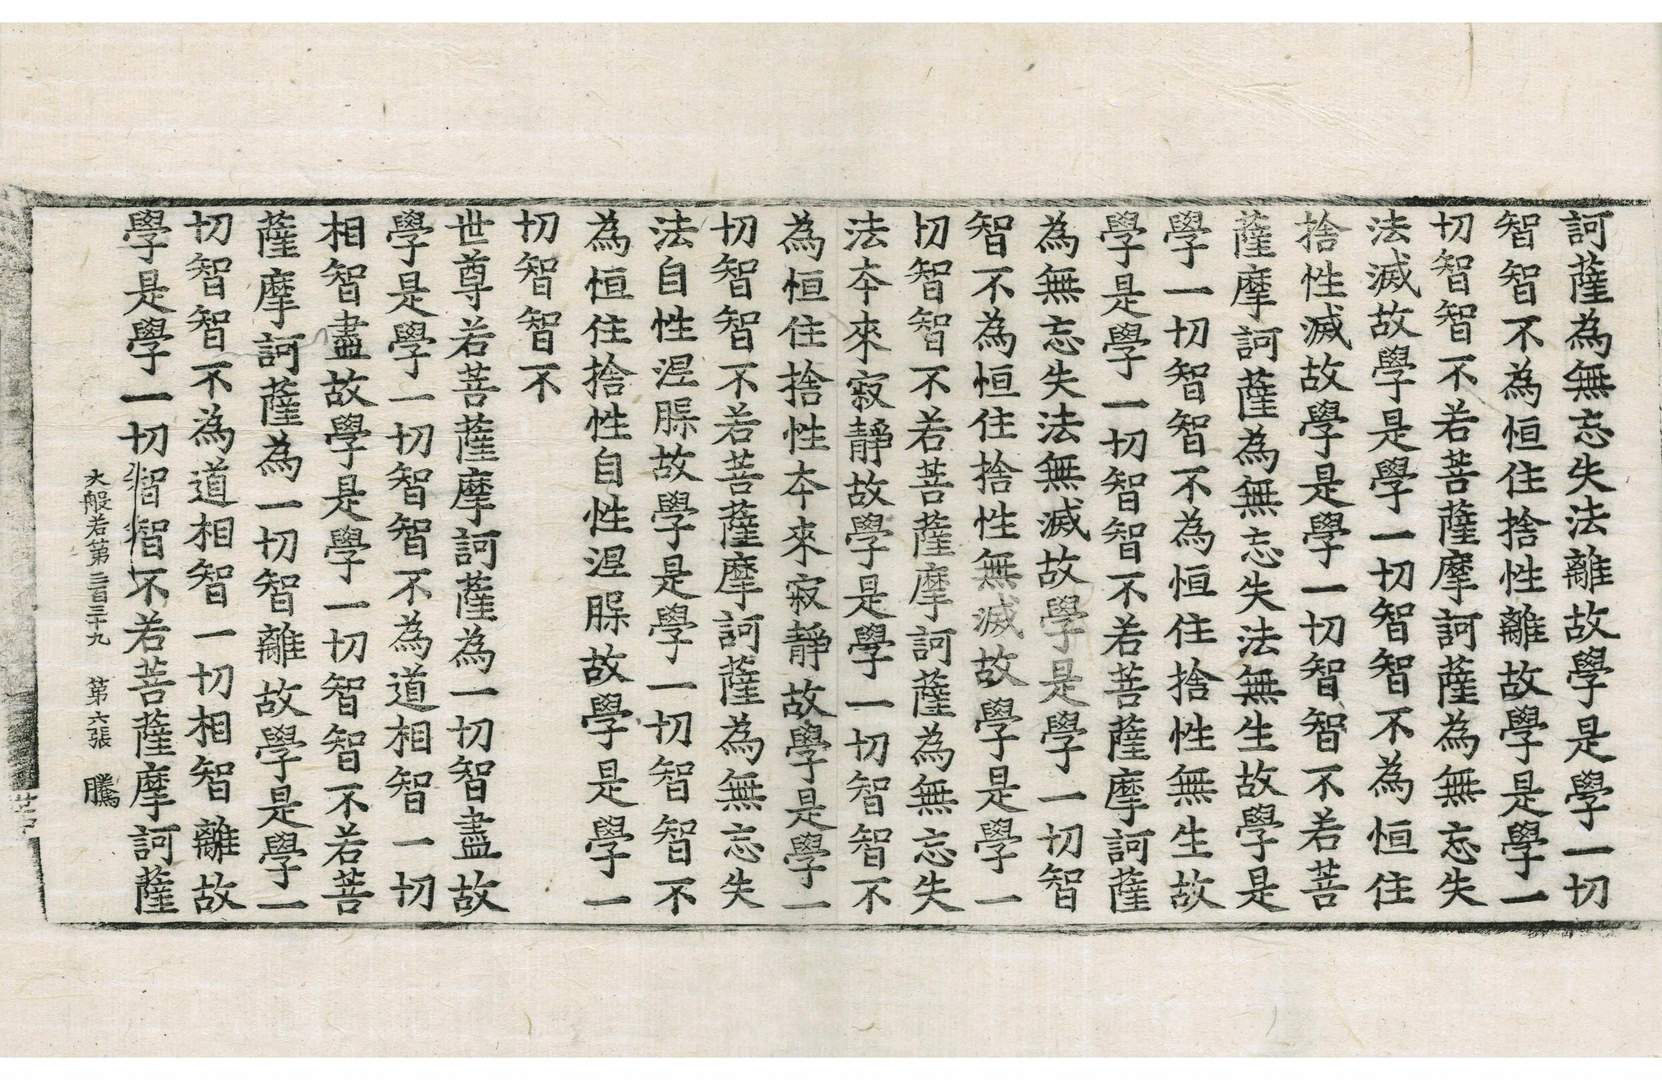 訶薩為無忘失法離故學是學一切
智智不為恒住捨性離故學是學一
切智智不若菩薩摩訶薩為無忘失
法滅故學是學一切智智不為恒住
捨性滅故學是學一切智智不若菩
薩摩訶薩為無忘失法無生故學是
學一切智智不為恒住捨性無生故
學是學一切智智不若菩薩摩訶薩
為無忘失法無滅故學是學一切智
智不為恒住捨性無滅故學是學一
切智智不若菩薩摩訶薩為無忘失
法夲來寂靜故學是學一切智智不
為恒住捨性夲來寂靜故學是學一
切智智不若菩薩摩訶薩為無忘失
法自性涅槃故學是學一切智智不
為恒住捨性自性涅槃故學是學一
切智智不
世尊若菩薩摩訶薩為一切智盡故
學是學一切智智不為道相智一切
相智盡故學是學一切智智不若菩
薩摩訶薩為一切智離故學是學一
切智智不為道相智一切相智離故
學是學一切智智不若菩薩摩訶薩
大般若第三百三十九 第六張 騰